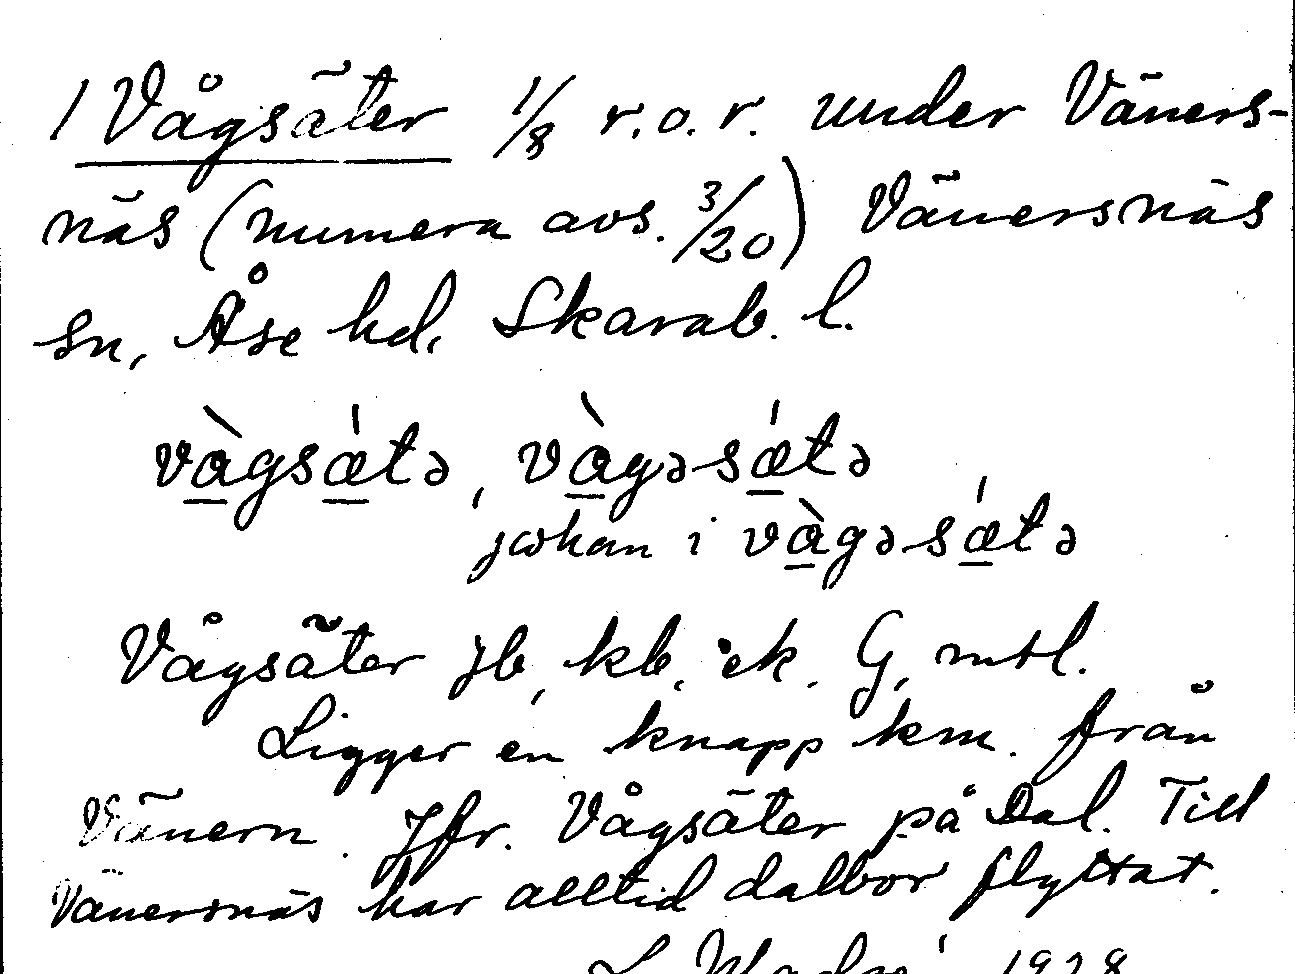 1 Vågsäter 1/8 r.o.r. under Väners-
näs (numera avs. 3/20) Vänersnäs
sn, Åse hd, Skarab. l.
và̠gsǽ̠tə, và̠gəsǽ̠tə
johan i và̠gəsǽ̠tə
Vågsäter jb, kb, ek. G, mtl.
Ligger en knapp km. från
Vänern. Jfr. Vågsäter på Dal. Till
Vänersnäs har alltid dalbor flyttat.
1928